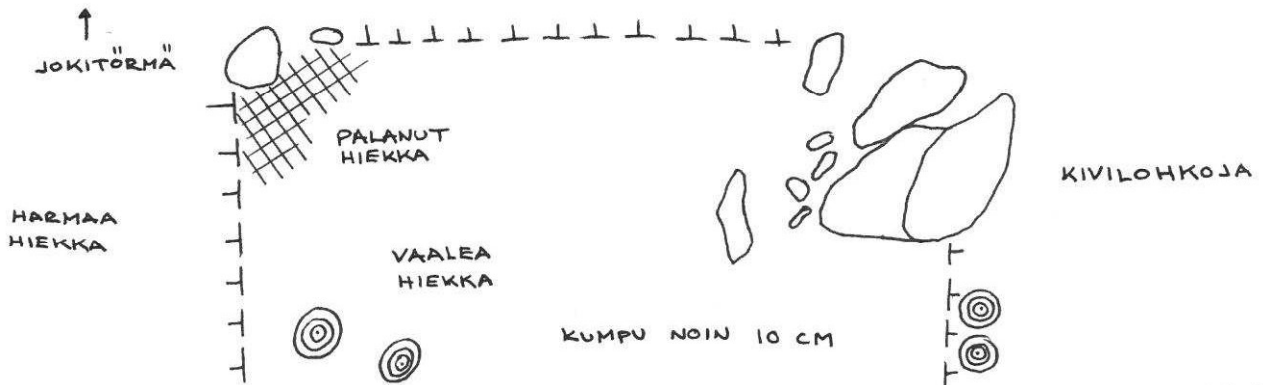 JOKITÖRMÄ
PALANUT
HIEKKA
KIVILOHKOJA
HARMAA
HIEKKA
VAALEA
HIEKKA
KUMPU NOIN 10 CM